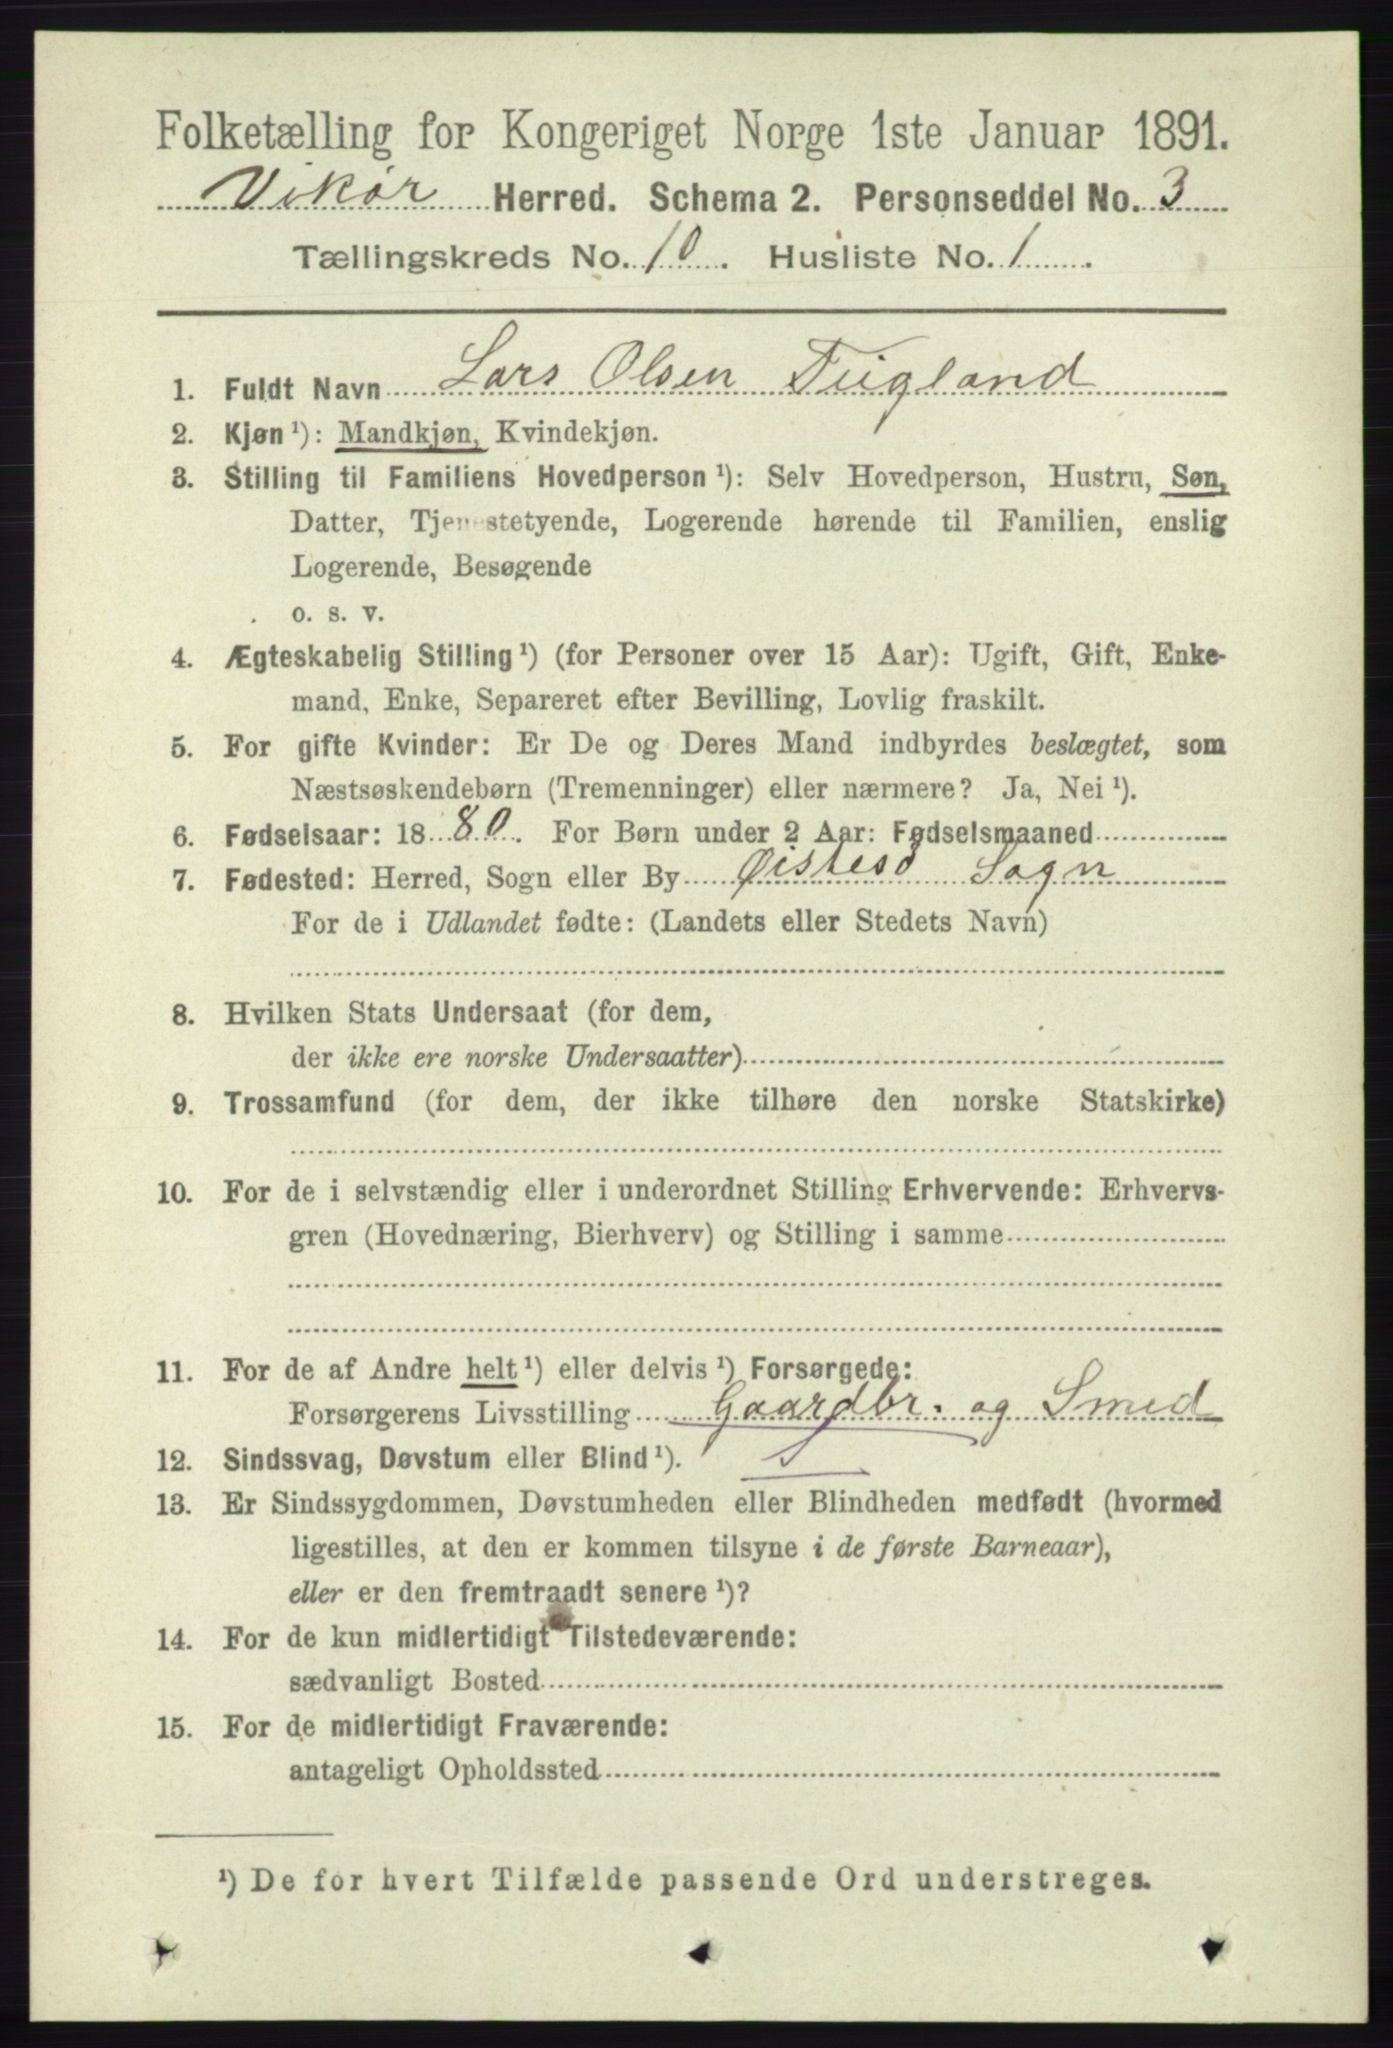 Folketælling for Kongeriget Norge 1ste Januar 1891.
Vikør Herred. Schema 2. Personseddel No. 3
Tællingskreds No. 10. Husliste No. 1.
1. Fuldt Navn Lars Olsen Fugland
2. Kjøn ¹): Mandkjøn, Kvindekjøn.
3. Stilling til Familiens Hovedperson ¹): Selv Hovedperson, Hustru, Søn,
Datter, Tjenestetyende, Logerende hørende til Familien, enslig
Logerende, Besøgende
o. s. v.
4. Ægteskabelig Stilling ¹) (for Personer over 15 Aar): Ugift, Gift, Enke-
mand, Enke, Separeret efter Bevilling, Lovlig fraskilt.
5. For gifte Kvinder: Er De og Deres Mand indbyrdes beslægtet, som
Næstsøskendebørn (Tremenninger) eller nærmere? Ja, Nei ¹).
6. Fødselsaar: 1880. For Børn under 2 Aar: Fødselsmaaned
7. Fødested: Herred, Sogn eller By Øistesø Sogn
For de i Udlandet fødte: (Landets eller Stedets Navn)
8. Hvilken Stats Undersaat (for dem,
der ikke ere norske Undersaatter)
9. Trossamfund (for dem, der ikke tilhøre den norske Statskirke)
10. For de i selvstændig eller i underordnet Stilling Erhvervende: Erhvervs-
gren (Hovednæring, Bierhverv) og Stilling i samme
11. For de af Andre helt ¹) eller delvis ¹) Forsørgede:
Forsørgerens Livsstilling Gaardbr. og Smed
12. Sindssvag, Døvstum eller Blind ¹). S
13. Er Sindssygdommen, Døvstumheden eller Blindheden medfødt (hvormed
ligestilles, at den er kommen tilsyne i de første Barneaar),
eller er den fremtraadt senere ¹)?
14. For de kun midlertidigt Tilstedeværende:
sædvanligt Bosted
15. For de midlertidigt Fraværende:
antageligt Opholdssted
¹) De for hvert Tilfælde passende Ord understreges.